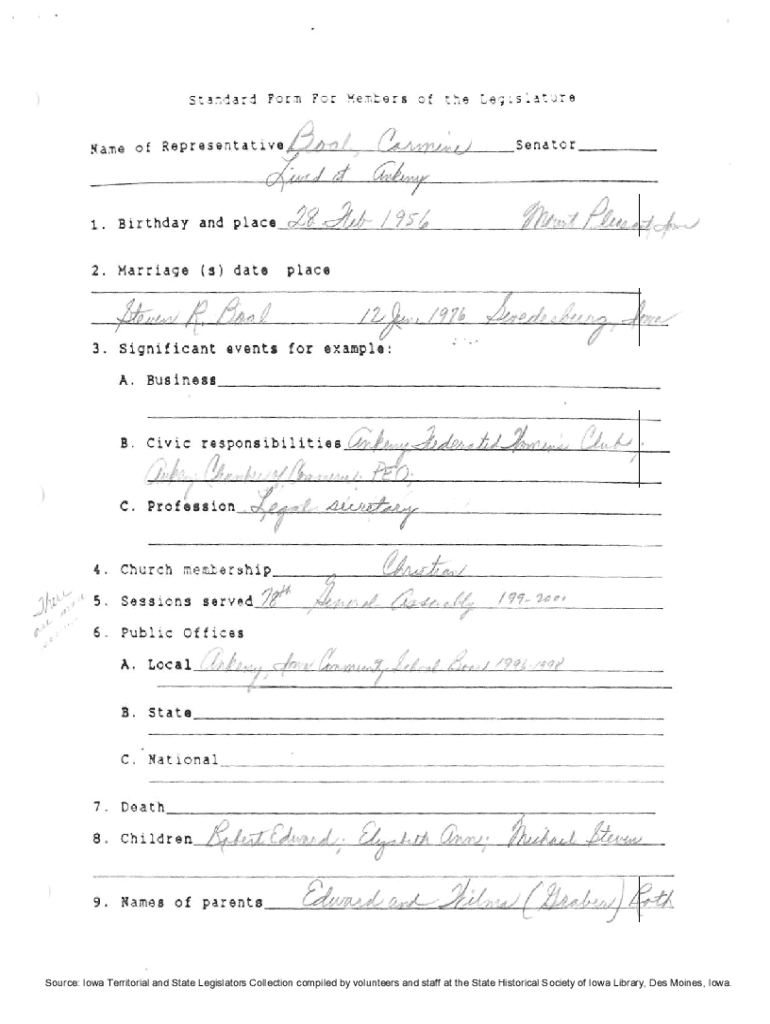 Standard Form For Members of the Legislature
Name of Representative Boal, Carmine Senator
Lived at Ankeny
1. Birthday and place 28 Feb 1956 Mount Pleasant, Iowa
2. Marriage (s) date place
Steven R Boal 12 Jun 1976 Swedesburg, Iowa
3. Significant events for example:
A. Business
B. Civic responsibilities Ankeny Federated Women's Club;
Ankeny Chamber of Commerce; PEO;
C. Profession Legal secretary
4. Church membership Christian
5. Sessions served 78th General Assembly 199-2001
There
are more
6. Public Offices
A. Local Ankeny, Iowa Community School Board 1996-1998
B. State
C. National
7. Death
8. Children Robert Edward; Elizabeth Anne; Michael Steven
9. Names of parents Edward and Wilma (Graber) Roth
Source: Iowa Territorial and State Legislators Collection compiled by volunteers and staff at the State Historical Society of Iowa Library, Des Moines, Iowa.